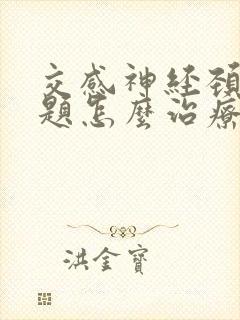 交感神経頚
题怎麼治療
洪金寶